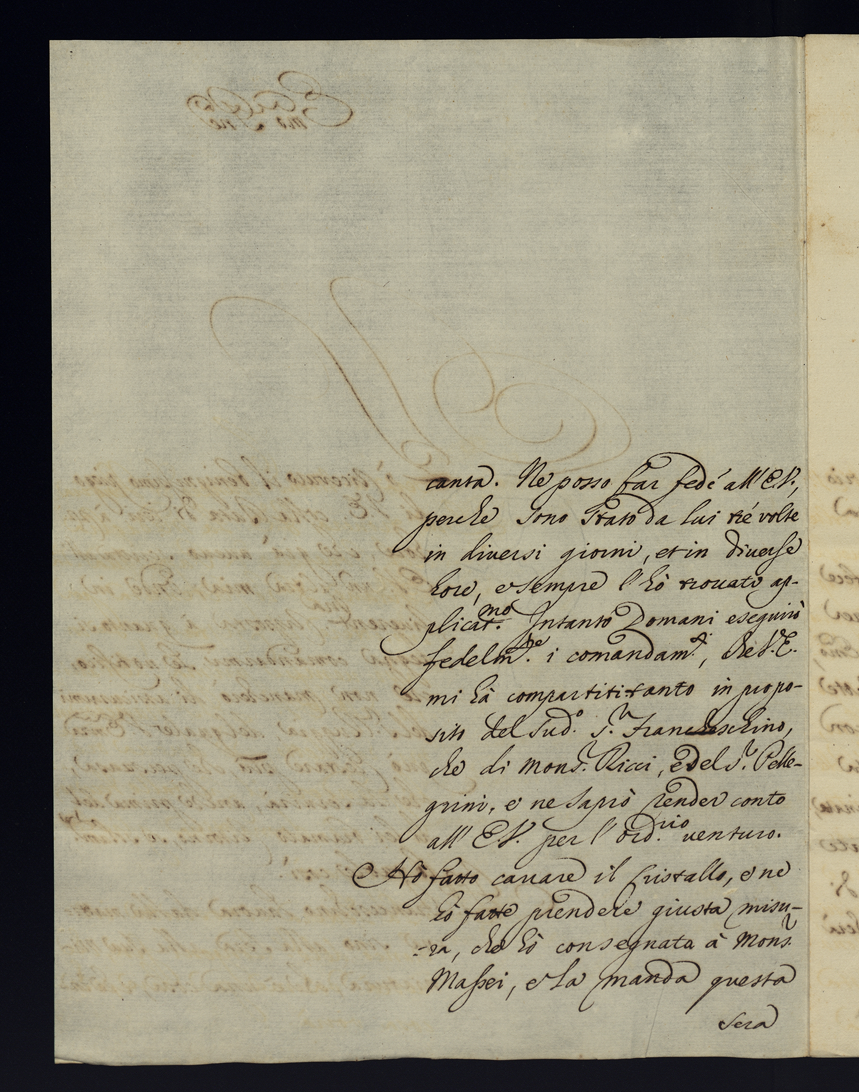 canta. Ne posso far fede all' E.V.,
perche sono stato da lui trè volte
in diversi giorni, et in diverse
hore, e sempre l'hò trovato ap-
plicat.mo Intanto Domani eseguirò
fedelm.te i comandam.ti, che V.E.
mi hà compartiti tanto in propo-
sito del sud.o s.r Francheschino,
che di Mons.r Ricci, e del s.r Pelle-
grini, e ne saprò render conto
all' E.V. per l' ord.rio venturo.
Hò fatto cavare il Cristallo, e ne
hò fatto prendere giusta misu-
ra, che hò consegnata à Mons.r
Massei, e la manda questa
sera